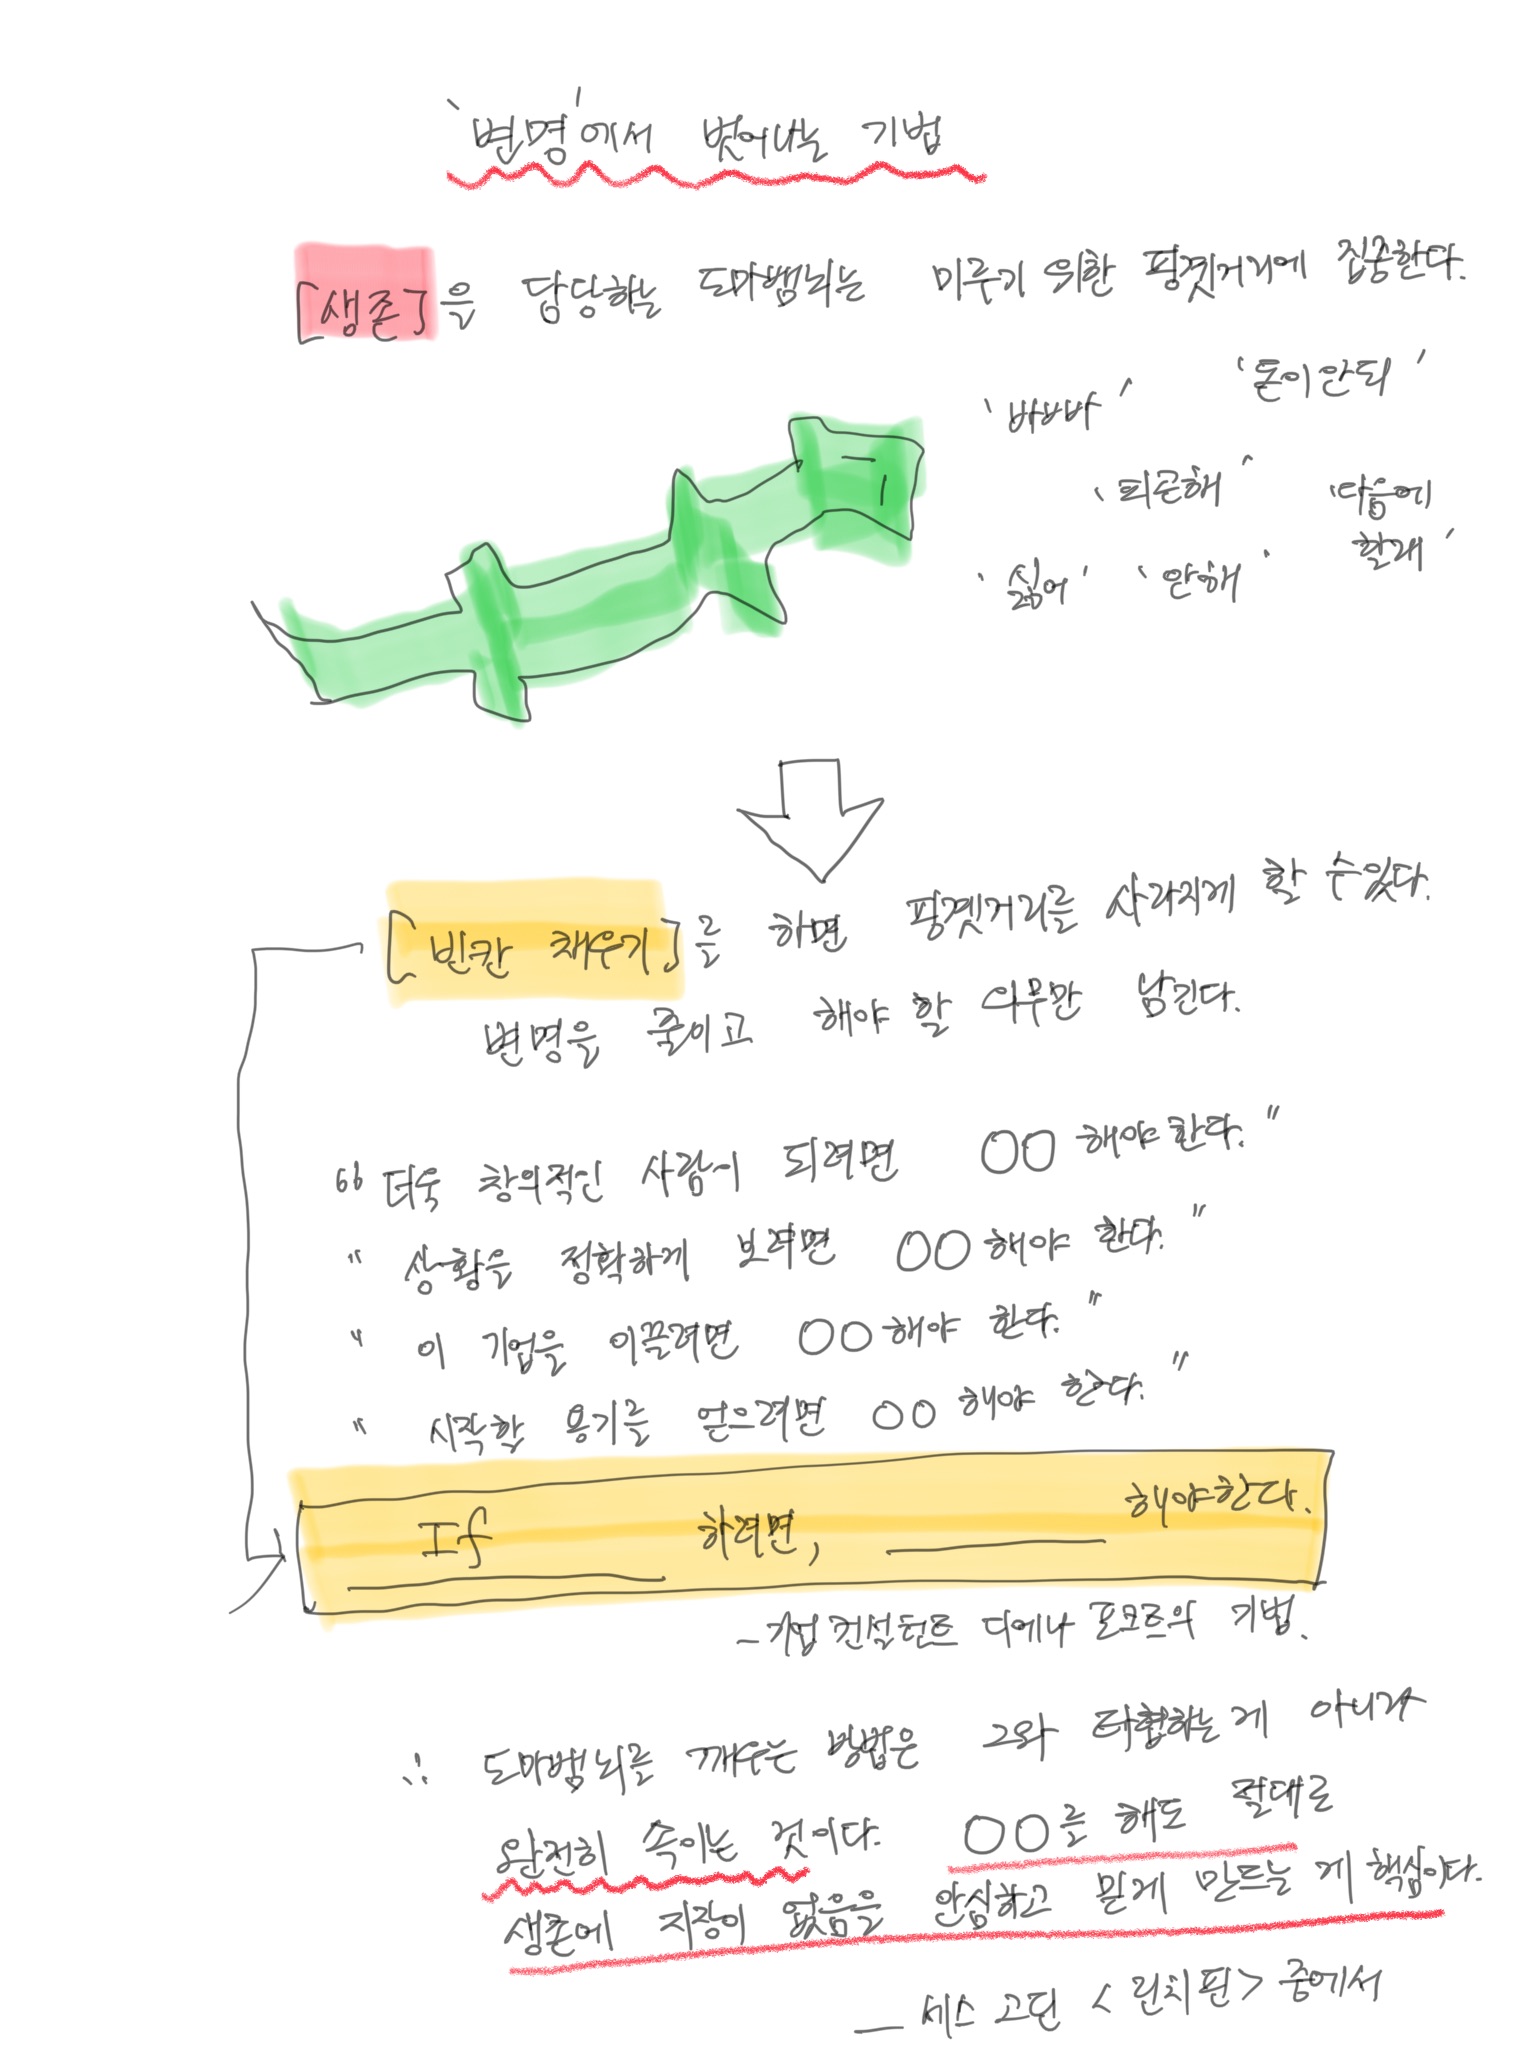 '변명'에서 벗어나는 기법
[생존]을 담당하는 도마뱀뇌는 미루기 위한 핑곗거리에 집중한다.
'바빠' '돈이안되'
'피곤해' '다음에
할래'
'싫어' '안해'
[빈칸 채우기]를 하면 핑곗거리를 사라지게 할 수있다.
변명을 줄이고 해야 할 의무만 남긴다.
"더욱 창의적인 사람이 되려면 ○○해야한다."
"상황을 정확하게 보려면 ○○해야 한다."
"이 기업을 이끌려면 ○○해야 한다."
"시작할 용기를 얻으려면 ○○해야 한다."
If 하려면, 해야한다.
- 기업컨설턴트 디에나 포크르의 기법.
∴ 도마뱀뇌를 깨우는 방법은 그와 타협하는게 아니라
완전히 속이는 것이다. ○○를 해도 절대로
생존에 지장이 없음을 안심하고 믿게 만드는 게 핵심이다.
— 세스 고딘 <린치핀> 중에서